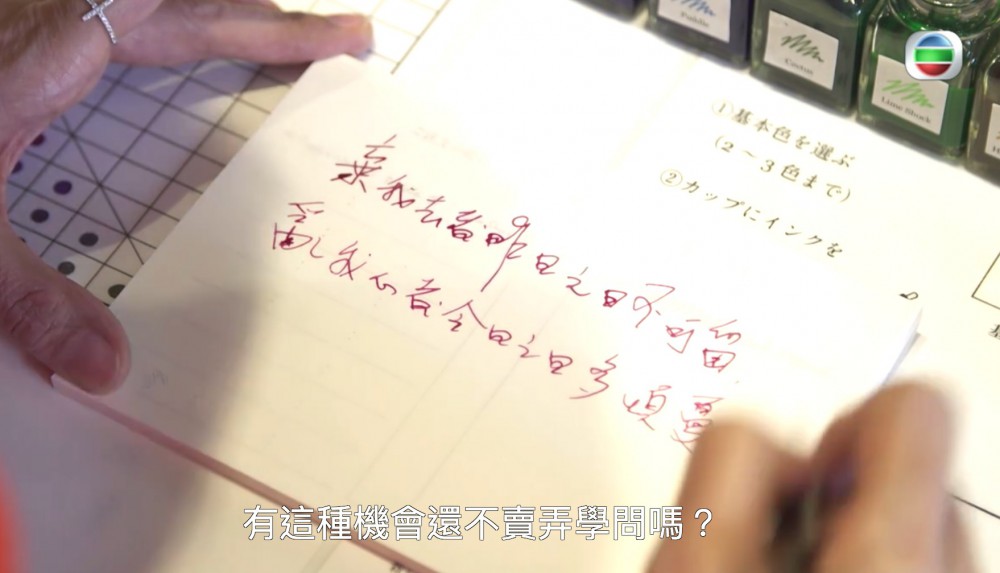 Castor
Lime Shock
①基本色を選ぶ
(2～3色まで)
②カップにインクを
棄我去者昨日之日不可留
亂我心者今日之日多煩憂
有這種機會還不賣弄學問嗎？